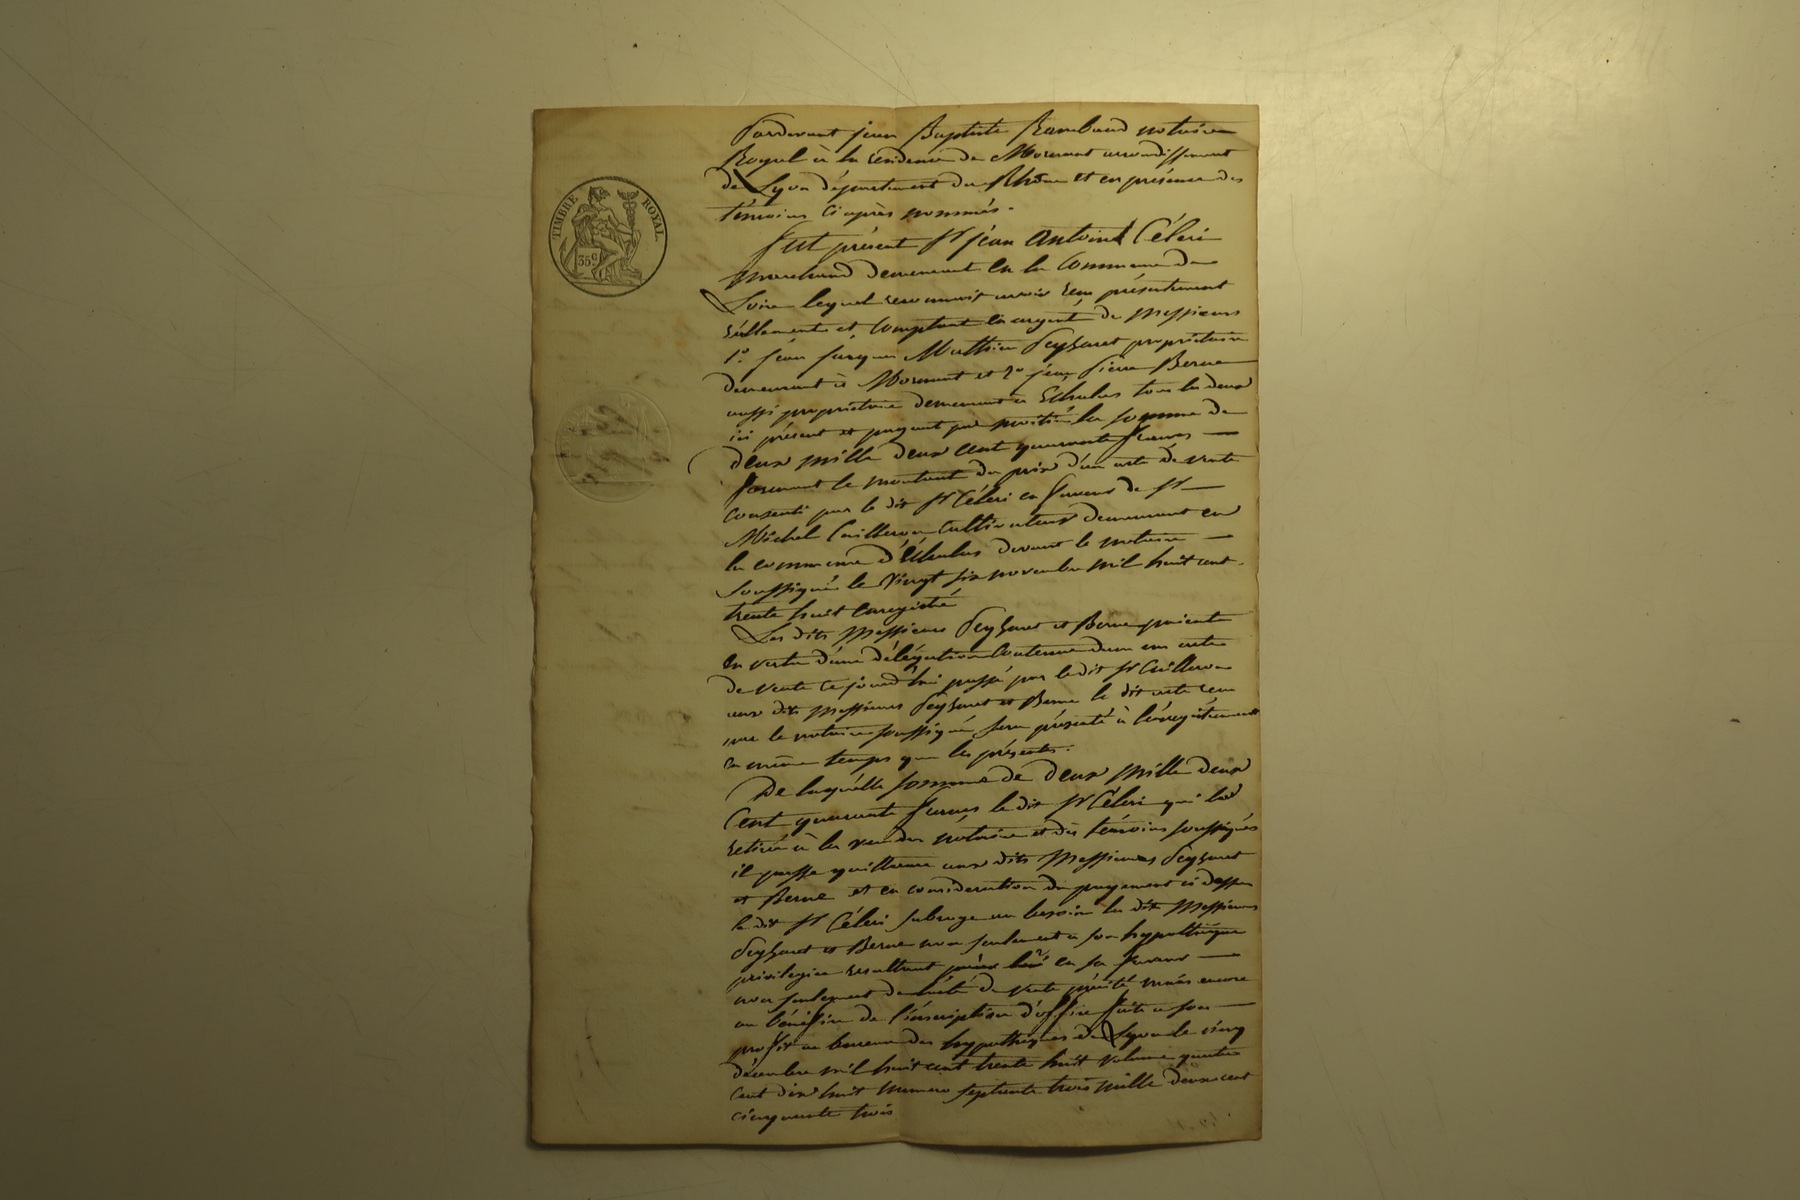 TIMBRE ROYAL
35c
Pardevant jean Baptiste Rambaud notaire
Royal à la residence de Mornant arrondissement
de Lyon département du Rhône et en présence des
témoins ciaprès nommés.
fut présent Sr jean Antoine Céleri
marchand demeurant en la Commune de
Loire lequel reconnoit avoir reçu présentement
réellement et comptant en argent de Messieurs
1o. jean jacques Mathieu Peyzaret propriétaire
demeurant à Mornant et 2o jean Pierre Berne
aussi propriétaire demeurant à Echalas tous les deux
ici présent et payant par moitié la somme de
deux mille deux cent quarante francs
formant le montant du prix d'un acte de vente
consenti par le dit Sr Céleri en faveur de Sr
Michel Cuilleron Cultivateur demeurant en
la commune d'Echalas devant le notaire
soussigné le vingt six novembre mil huit cent
trente huit enregistré
Les dits Messieurs Peyzaret et Berne paient
en vertu d'une délégation contenue dans un acte
de vente ce jourd'hui passé par le dit Sr Cuilleron
aux dits Messieurs Peyzaret et Berne le dit acte reçu
par le notaire soussigné sera présenté à l'enregistrement
en même temps que les présentes.
De laquelle somme de deux mille deux
Cent quarante francs le dit Sr Céleri qui l'a
retirée à la vue du notaire et des témoins soussignés
il passe quittance aux dits Messieurs Peyzaret
et Berne et en considération du payement ci dessus
le dit Sr Céleri subroge au besoin les dits Messieurs
Peyzaret et Berne non seulement à son hypothèque
privilegiee resultant en sa faveur
non seulement de l'acte de vente précité mais encore
au bénéfice de l'inscription d'office faite a son
profit au bureau des hypothèques de Lyon le cinq
décembre mil huit cent trente huit volume quatre
cent dix huit numero septante trois mille deux cent
cinquante trois